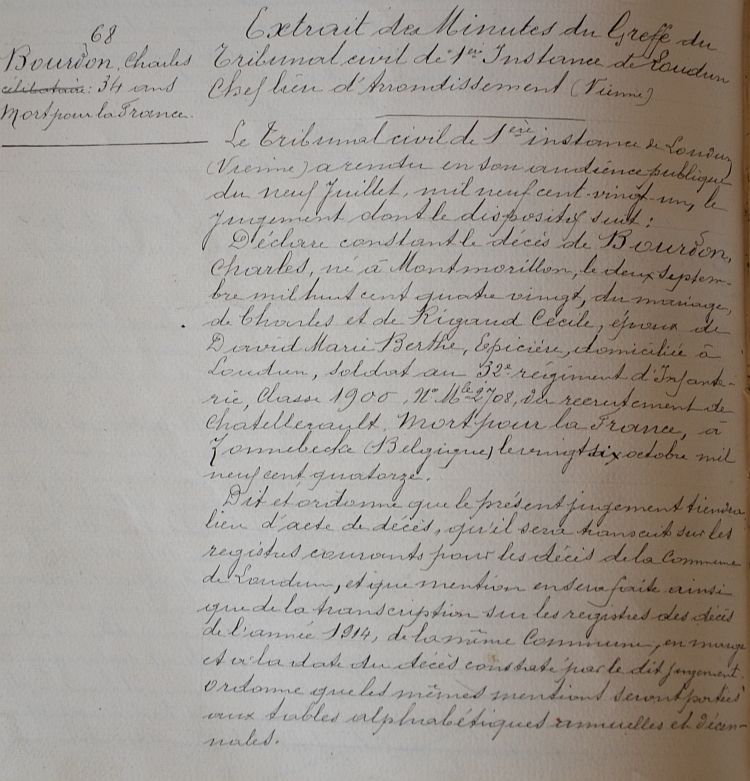 68
Bourdon, Charles
célibataire: 34 ans
Mort pour la France.
Extrait des Minutes du Greffe du
Tribunal civil de 1ère Instance de Loudun
Chef lieu d'Arrondissement (Vienne)
Le Tribunal civil de 1ère instance de Loudun
(Vienne) a rendu en son audience publique
du neuf Juillet, mil neuf cent vingt-un, le
jugement dont le dispositif suit:
Déclare constant le décès de Bourdon,
Charles, né à Montmorillon, le deux Septem-
bre mil huit cent quatre vingt, du mariage,
de Charles et de Rigaud Cécile, époux de
David Marie Berthe, Epicière, domiciliée à
Loudun, soldat au 32e régiment d'Infante-
rie, Classe 1900, No Mle 2708, du recrutement de
Chatellerault. Mort pour la France, à
Zonnebecke (Belgique) le vingt six octobre mil
neuf cent quatorze.
Dit et ordonne que le présent jugement tiendra
lieu d'acte de décès, qu'il sera transcrit sur les
registres courants pour les décès de la Commune
de Loudun, et que mention en sera faite ainsi
que de la transcription sur les registres des décès
de l'année 1914, de la même Commune, en marge
et à la date du décès constaté par le dit jugement.
Ordonne que les mêmes mentions seront portées
aux tables alphabétiques annuelles et décen-
nales.